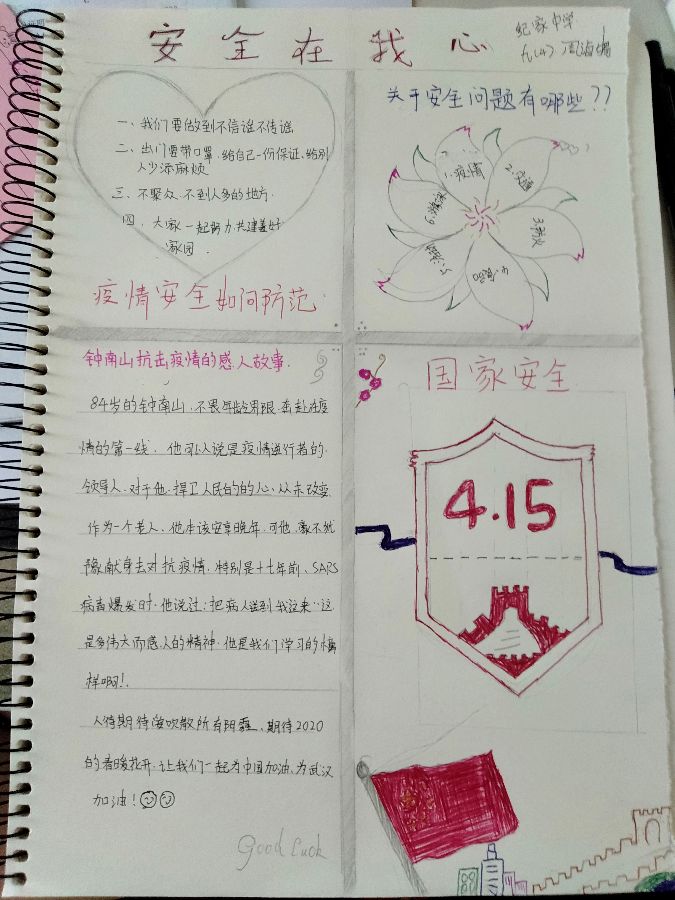 安全在我心
纪家中学
关于安全问题有哪些??
一、我们要做到不信谣不传谣
二、出门要带口罩.给自己一份保证.给别
人少添麻烦
三、不聚众.不到人多的地方.
四、大家一起努力.共建美好
家园.
疫情安全如何防范
1.疫情
2.交通
3.防火
4.食品
钟南山抗击疫情的感人故事.
84岁的钟南山.不畏年龄界限.奔赴在疫
情的第一线.他可以说是疫情逆行者的.
领导人.对于他.捍卫人民的的心.从未改变
作为一个老人.他本该安享晚年.可他.毫不犹
豫献身去对抗疫情.特别是十七年前、SARS
病毒爆发时.他说过:把病人送到我这来..这
是多伟大而感人的精神.他是我们学习的榜
样啊!.
人待期待
吹散所有阴霾、期待2020
的春暖花开.让我们一起为中国加油.为武汉
加油!
Good Luck
国家安全
4.15